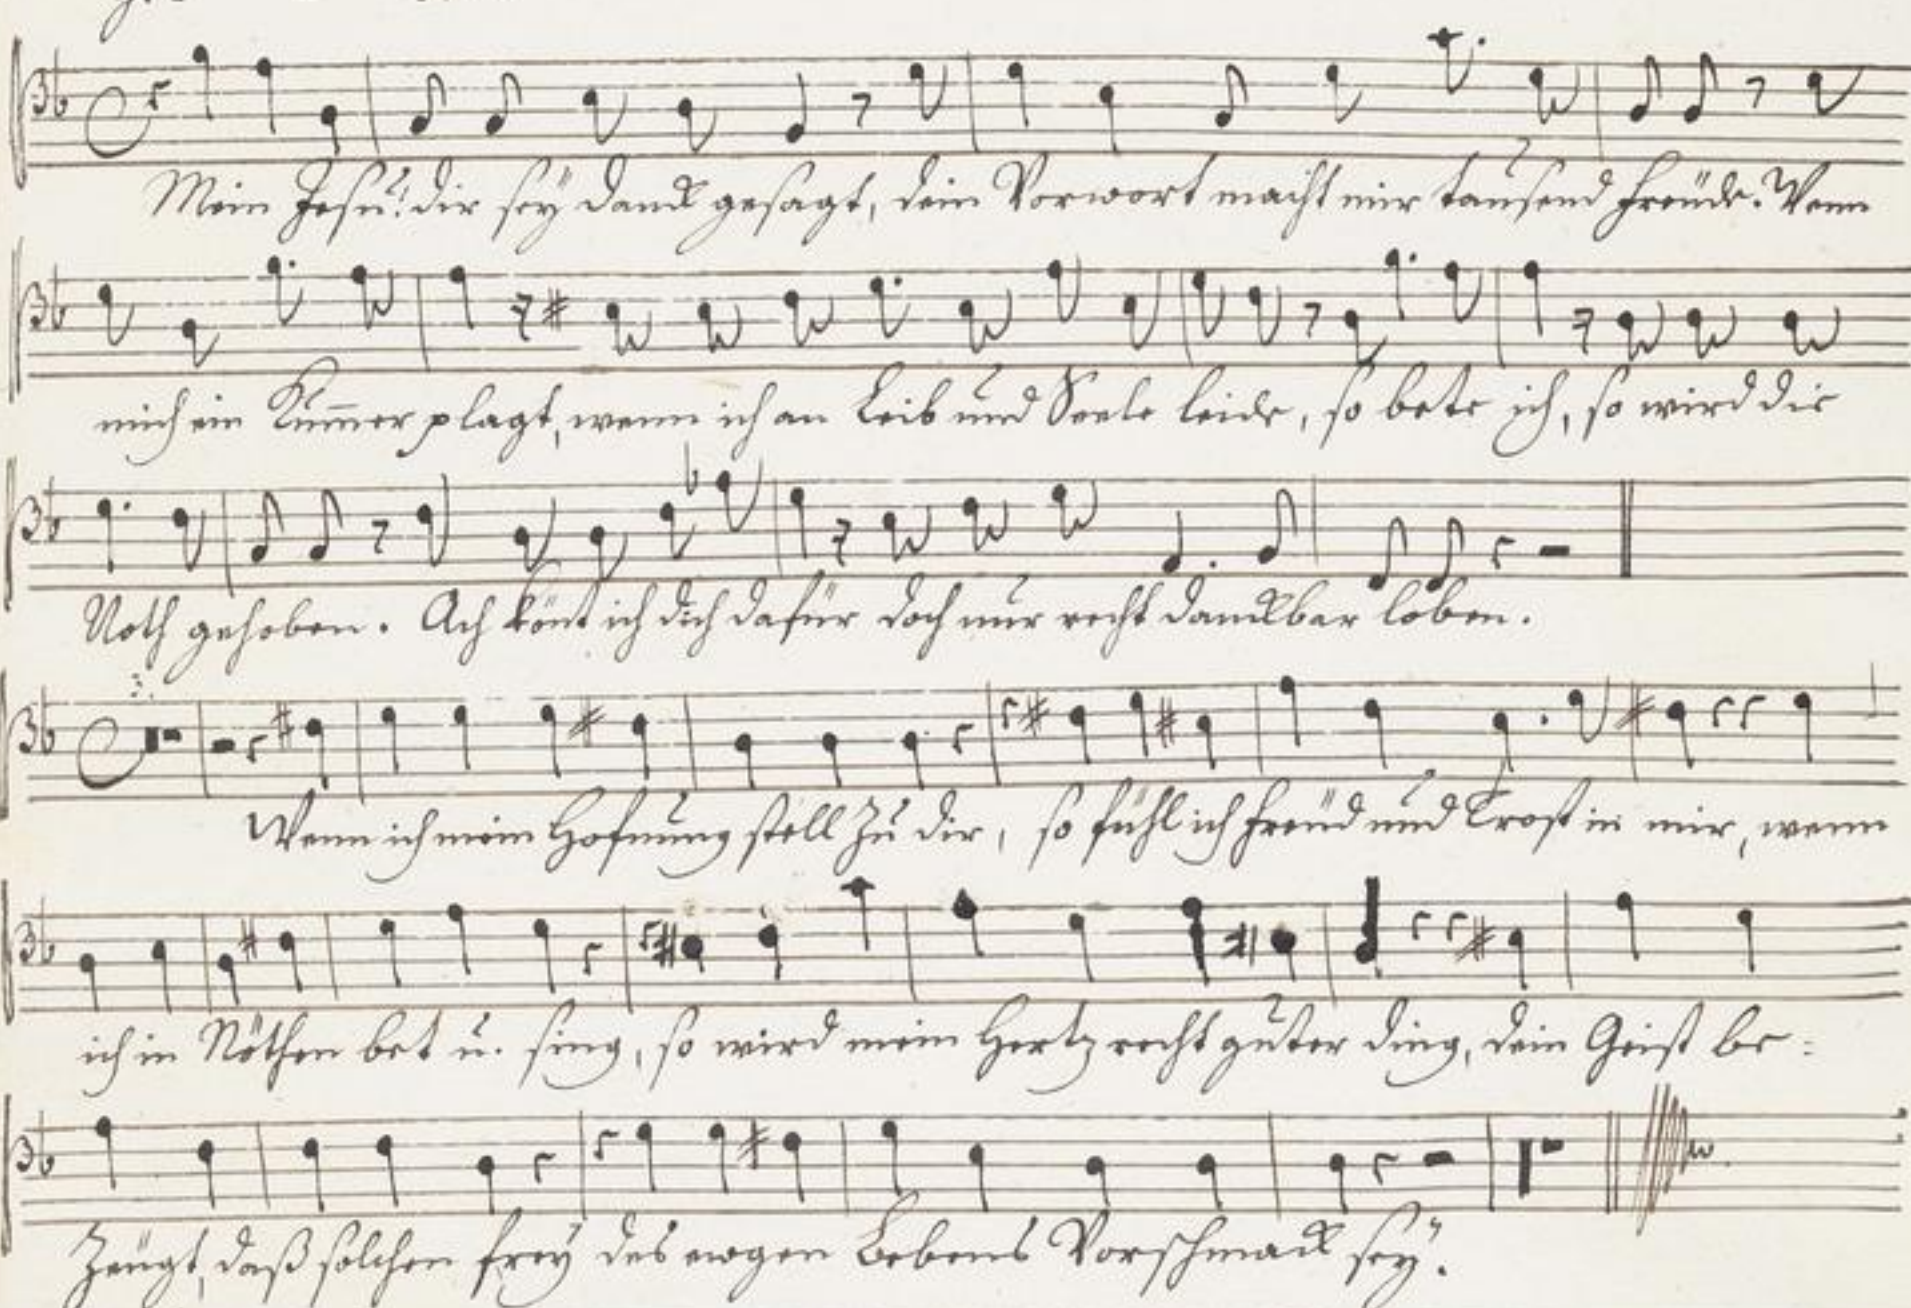 Mein Jesu! dir seÿ danck gesagt, dein Vorwort macht mir tausend Freüde. Wenn
mich ein Kum̅er plagt, wenn ich an Leib und Seele leide, so bete ich, so wird die
Noth gehoben. Ach kön̅t ich dich dafür doch nur recht danckbar loben.
Wenn ich mein Hofnung stell zu dir, so fühl ich Freüd und Trost in mir, wenn
ich in Nöthen bet u. sing, so wird mein Hertz recht guter ding, dein Geist be:
zeügt, daß solches freÿ des ewgen Lebens Vorschmack seÿ.